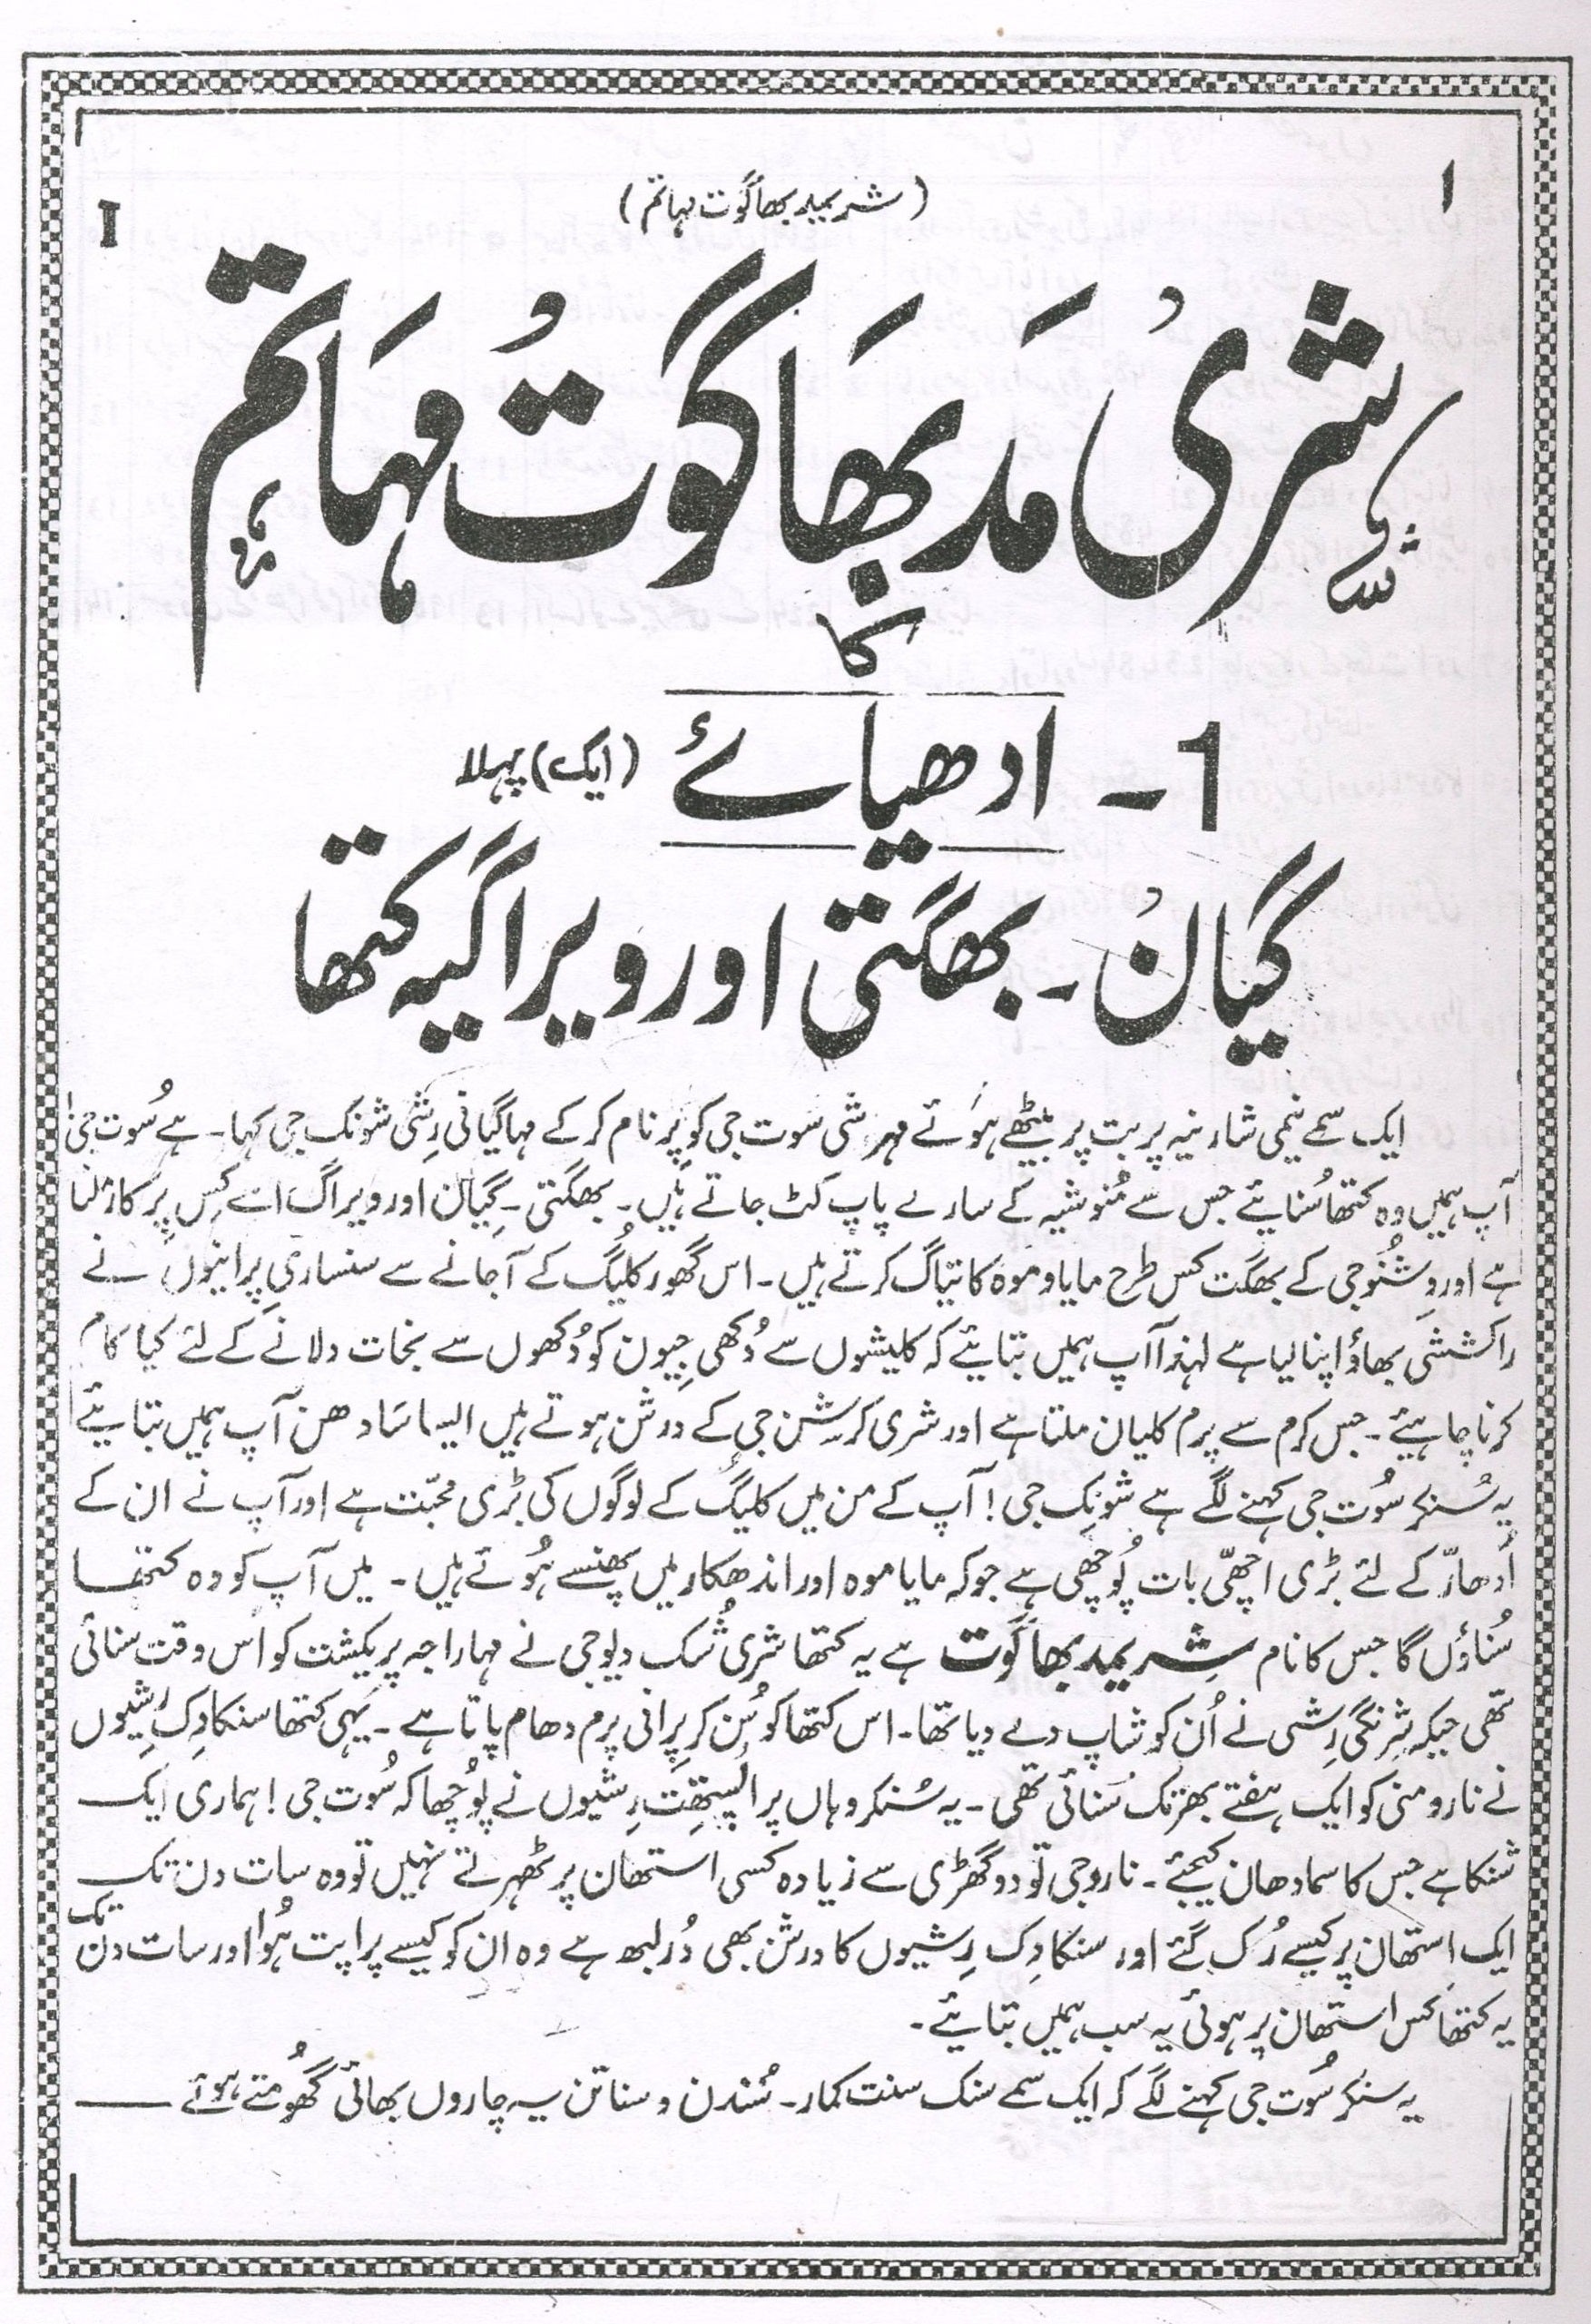 ا
(شریمد بھاگوت مہاتم)
I
شری مد بھاگوت مہاتم
کا
1- ادھیائے (ایک) پہلا
گیان۔ بھگتی اور ویراگیہ کتھا
ایک سمے نیمی شارنیہ پربت پر بیٹھے ہوئے مہرشی سوت جی کو پرنام کر کے مہاگیانی رِشی شونک جی کہا۔ ہے سُوت جی
آپ ہمیں وہ کتھا سُنایئے جس سے مُنوشیہ کے سارے پاپ کٹ جاتے ہیں۔ بھگتی۔ گیان اور ویراگ اسے کِس پرکار ملتا
ہے اور وِشنُو جی کے بھگت کس طرح مایا و موہ کا تیاگ کرتے ہیں۔ اس گھور کلیُگ کے آجانے سے سنساری پرانیوں نے
راکششی بھاؤ اپنا لیا ہے لہٰذا آپ ہمیں بتایئے کہ کلیشوں سے دُکھی جیون کو دُکھوں سے نجات دلانے کے لئے کیا کام
کرنا چاہیئے۔ جس کرم سے پرم کلیان ملتا ہے اور شری کرشن جی کے درشن ہوتے ہیں ایسا سَادھن آپ ہمیں بتایئے
یہ سُنکر سُوت جی کہنے لگے ہے شونک جی! آپ کے من میں کلیگ کے لوگوں کی بڑی محبّت ہے اور آپ نے ان کے
اُدھار کے لئے بڑی اچھّی بات پُوچھی ہے جوکہ مایا موہ اور اندھکار میں پھنسے ہُوئے ہیں۔ میں آپ کو وہ کتھا
سُناؤں گا جس کا نام شریمد بھاگوت ہے یہ کتھا شری شُک دیو جی نے مہاراجہ پریکشت کو اُس وقت سنائی
تھی جبکہ شرنگی رِشی نے اُن کو شاپ دے دیا تھا۔ اس کتھا کو سُن کر پرانی پرم دھام پاتا ہے۔ یہی کتھا سنکادِک رِشیوں
نے نارد منی کو ایک ہفتے بھر تک سُنائی تھی۔ یہ سُنکر وہاں پر اُپستھِت رِشیوں نے پُوچھا کہ سُوت جی! ہماری ایک
شنکا ہے جس کا سمادھان کیجیئے۔ نارد جی تو دو گھڑی سے زیادہ کسی استھان پر ٹھہرتے نہیں تو وہ سات دن تک
ایک استھان پر کیسے رُک گئے اور سنکادِک رِشیوں کا درشن بھی دُرلبھ ہے وہ ان کو کیسے پراپت ہُوا اور سات دن تک
یہ کتھا کس استھان پر ہوئی یہ سب ہمیں بتایئے۔
یہ سنکر سُوت جی کہنے لگے کہ ایک سمے سنک سنت کمار۔ سُندن و سناتن یہ چاروں بھائی گھُومتے ہوئے